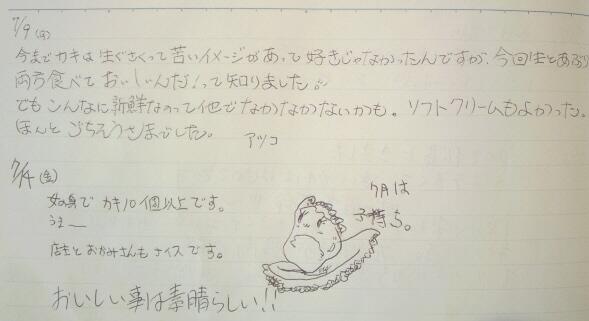 7/9(金)
今までカキは生ぐさくって苦いイメージがあって好きじゃなかったんですが、今回生とあぶり
両方食べておいしいんだ!って知りました。
でもこんなに新鮮なのって他でなかなかないかも。ソフトクリームもよかった。
ほんとごちそうさまでした。 アツコ
7/14(金)
女の身でカキ10個以上です。
うまー
店主とおかみさんもナイスです。
7月は
子持ち。
おいしい事は素晴らしい!!